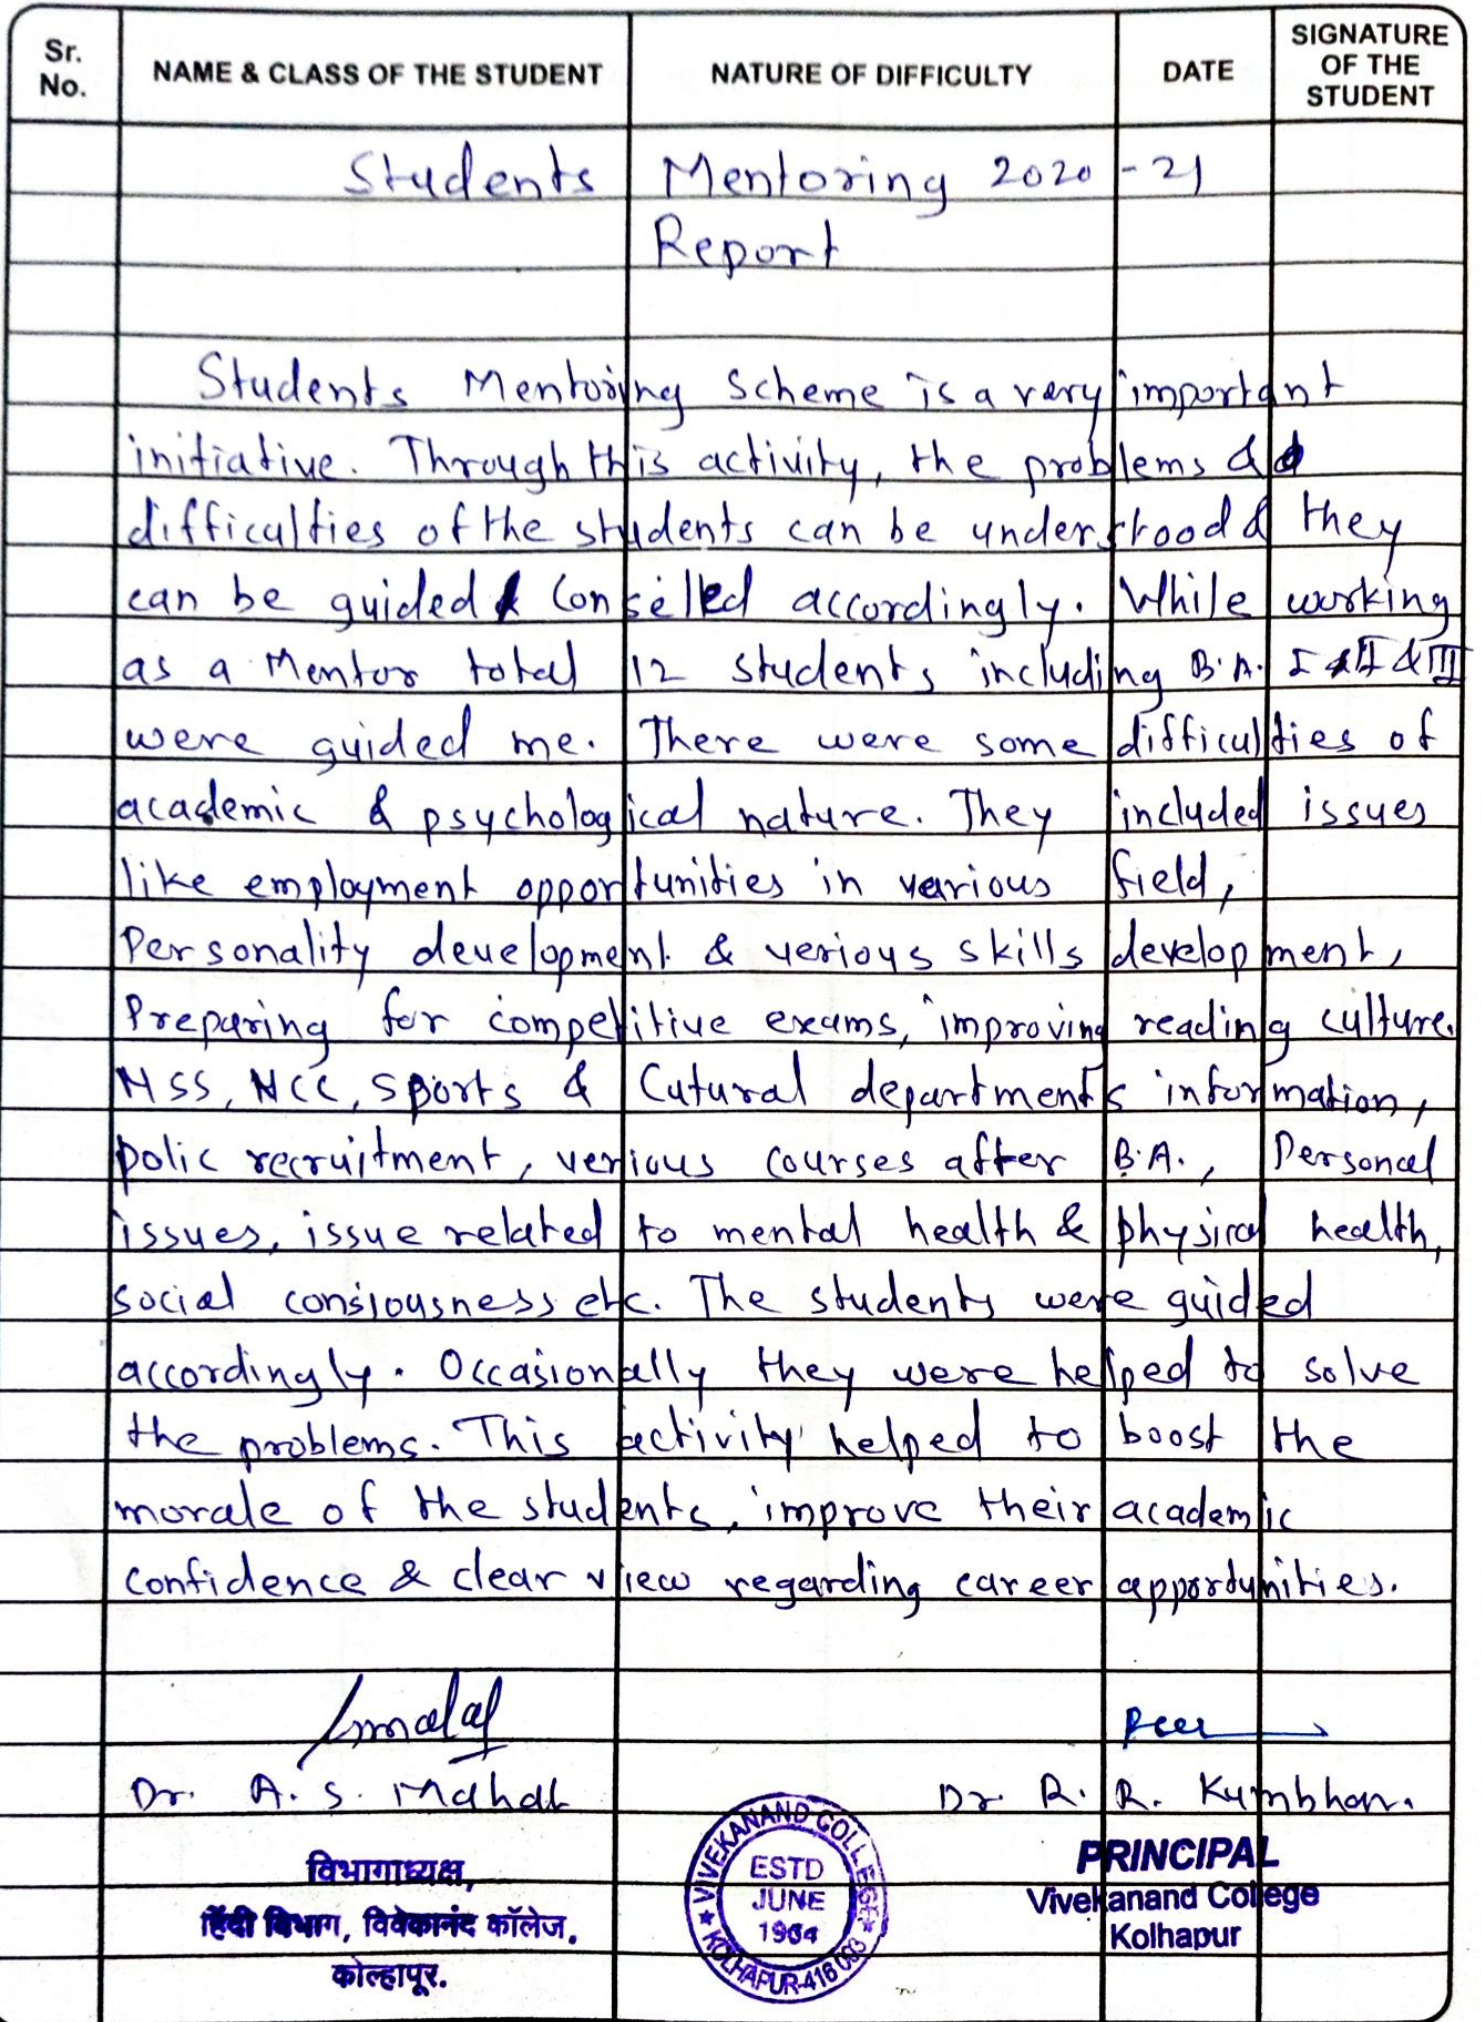 Sr. No.
NAME & CLASS OF THE STUDENT
NATURE OF DIFFICULTY
DATE
SIGNATURE OF THE STUDENT
Students Mentoring 2020-21
Report
Students Mentoring Scheme is a very important
initiative. Through this activity, the problems &
difficulties of the students can be understood & they
can be guided & Conselled accordingly. While working
as a Mentor total 12 students including B.A. I & II & III
were guided me. There were some difficulties of
academic & psychological nature. They included issues
like employment opportunities in various field,
Personality development & verious skills development,
Preparing for competitive exams, improving reading culture.
NSS, NCC, Sports & Cutural departments information,
polic recruitment, verious courses after B.A., Personal
issues, issue related to mental health & physical health,
social consiousness etc. The students were guided
accordingly. Occasionally they were helped to solve
the problems. This activity helped to boost the
morale of the students, improve their academic
confidence & clear view regarding career apportunities.
Dr. A. S. Mahat
Dr. R. R. Kumbhar.
विभागाध्यक्ष,
हिंदी विभाग, विवेकानंद कॉलेज,
कोल्हापूर.
VIVEKANAND COLLEGE
ESTD
JUNE
1964
KOLHAPUR-416 003
PRINCIPAL
Vivekanand College
Kolhapur